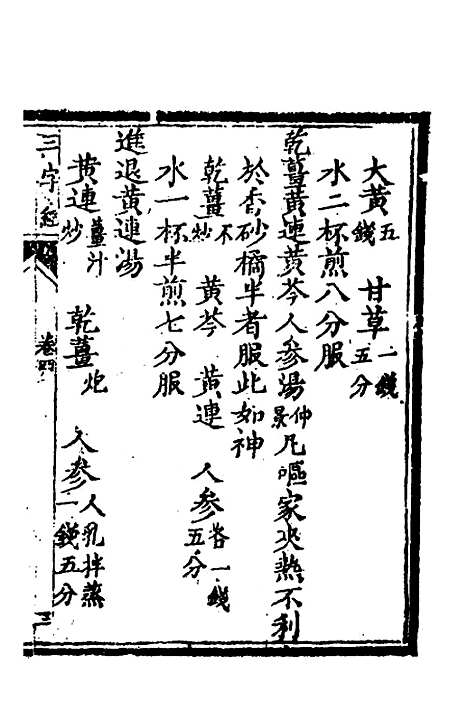 大黄五錢 甘草一錢五分
水二杯煎八分服
乾薑黄連黄芩人參湯仲景凡嘔家夾熱不利
於香砂橘半者服此如神
乾薑不炒 黄芩 黄連 人參各一錢五分
水一杯半煎七分服
進退黄連湯
黄連薑汁炒 乾薑炮 人參人乳拌蒸一錢五分
三字經 卷四 三